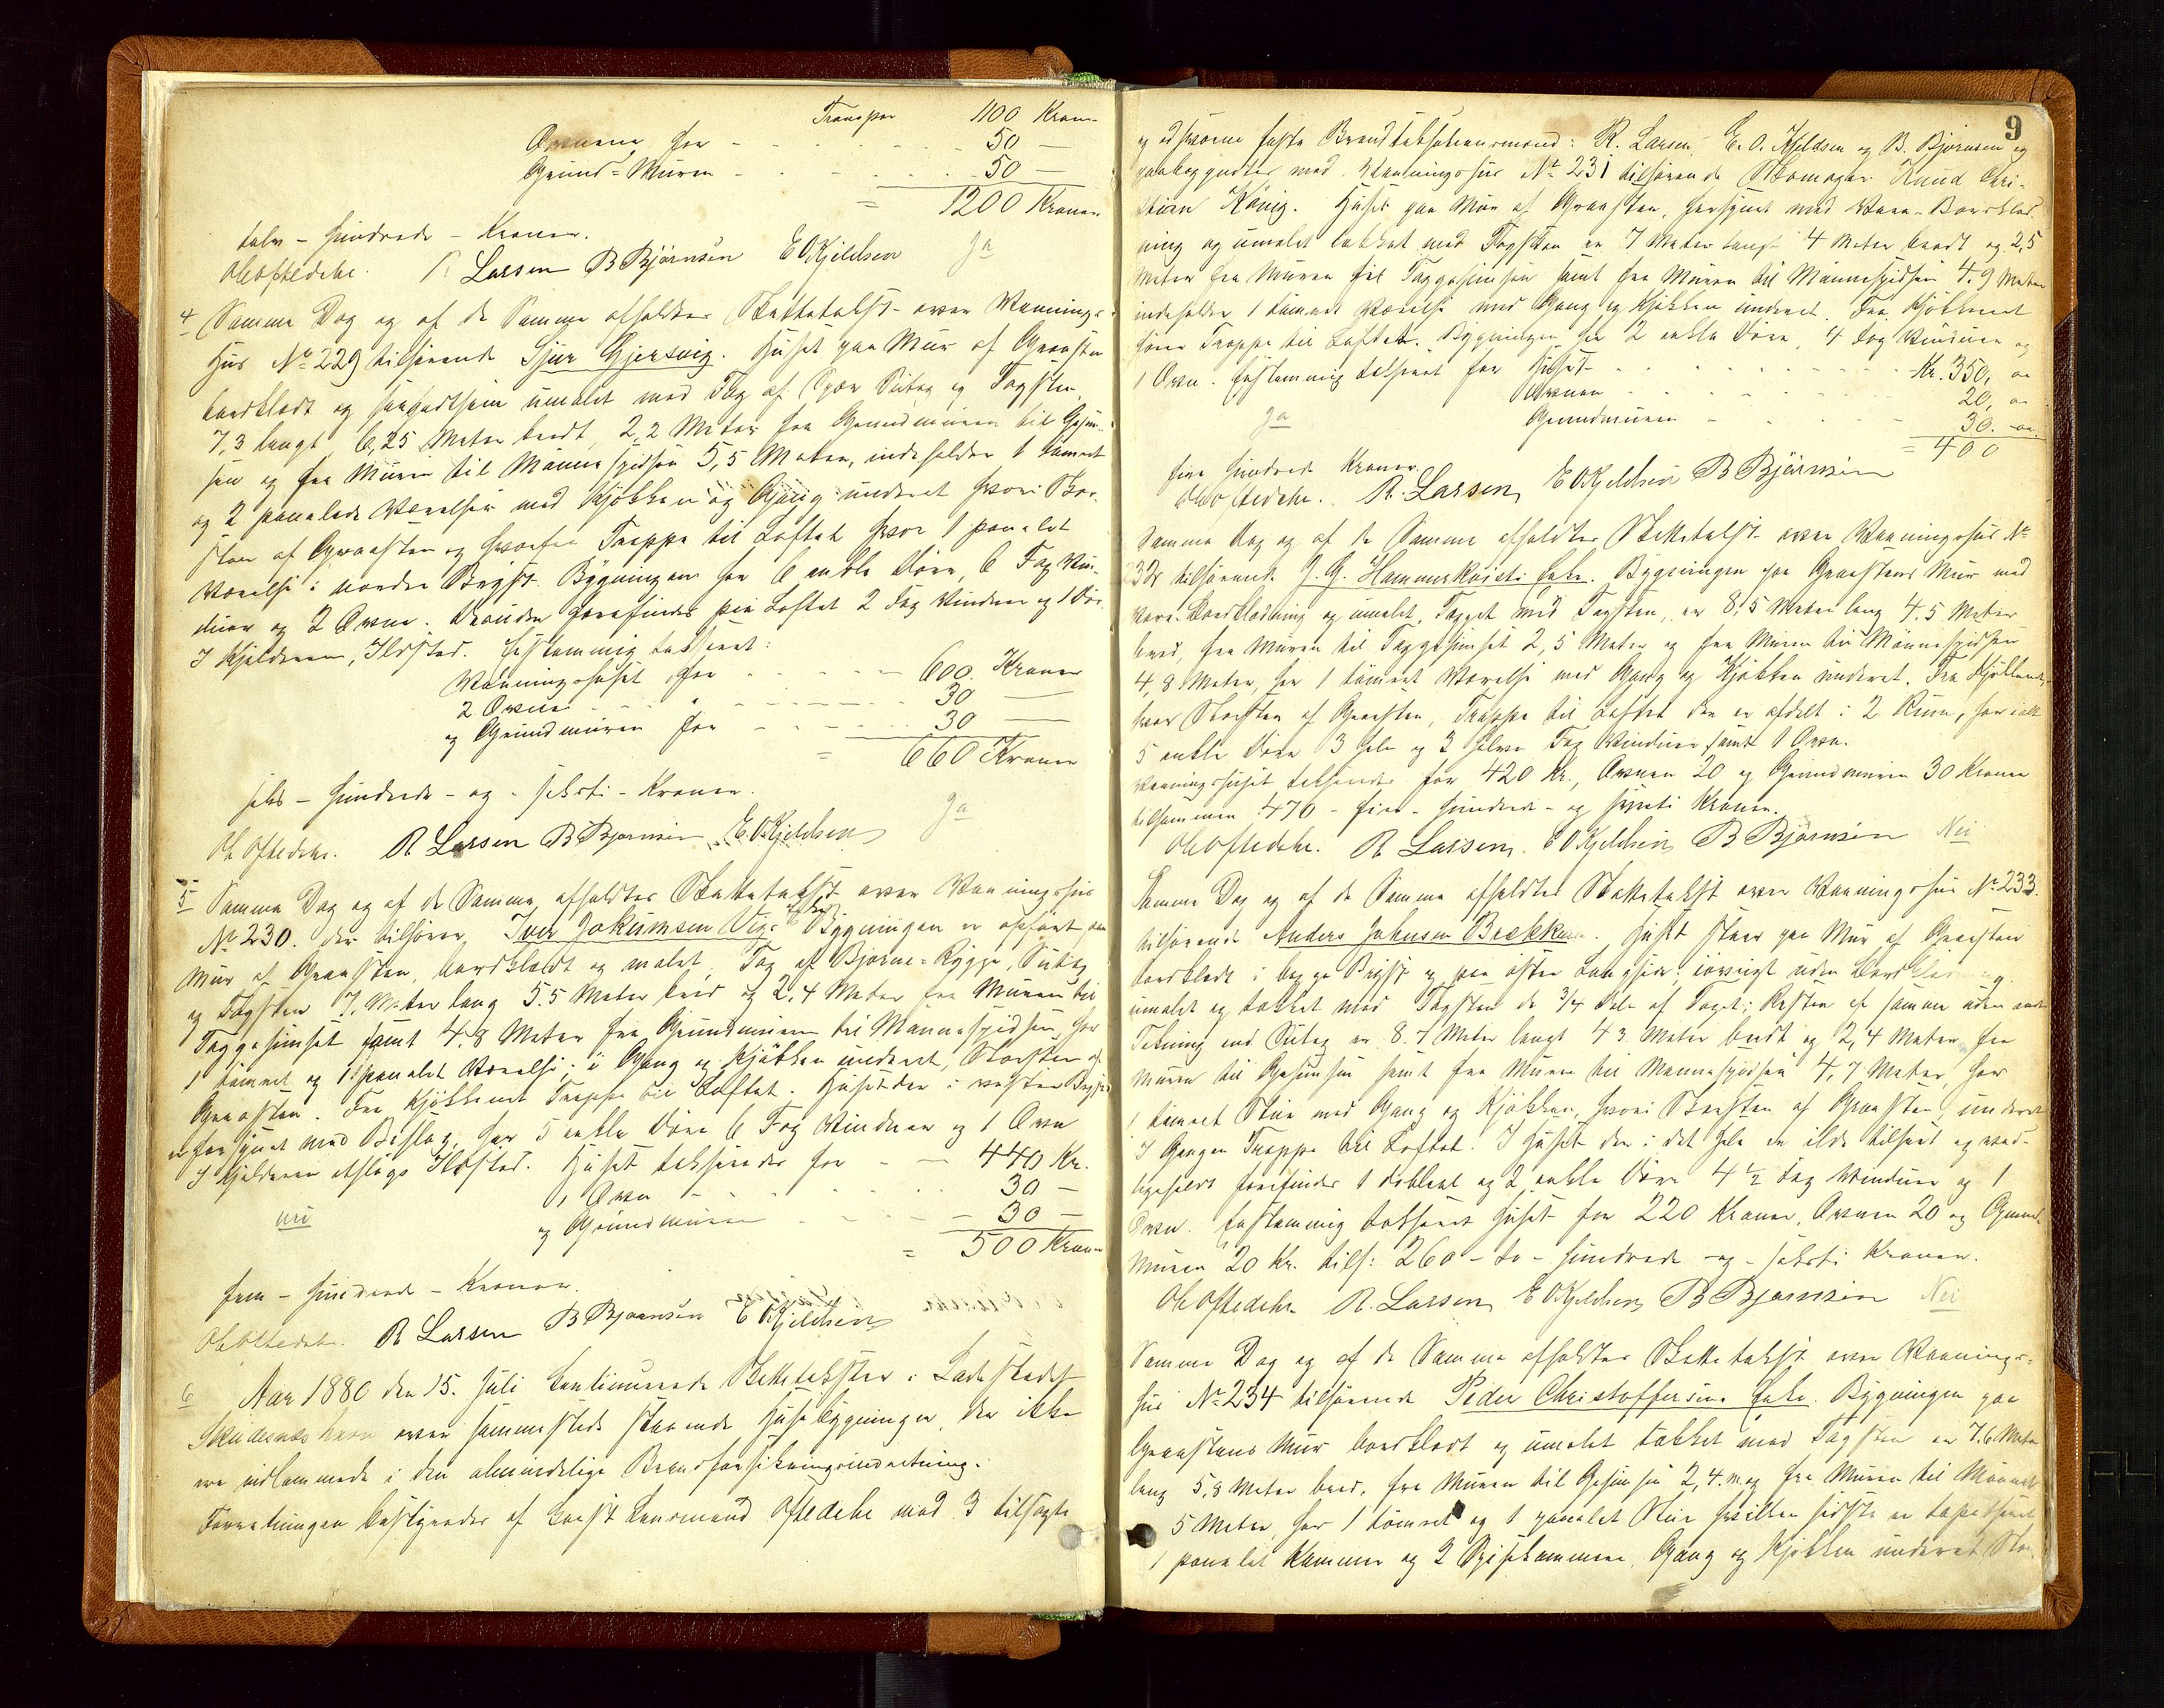 Transpor 1100 Kron.
Ovnene for - - - 50 —
Grund-Muren - - - 50 —
= 1200 Kroner
tolv - hundrede - Kroner.
OleOftedahl. R Larsen B Bjørnsen E O Kjeldsen Ja
4 Samme Dag og af de Samme afholdtes Skattetakst over Vaanings-
Hus No 229 tilhørende Sjur Gjersvig. Huset paa Mur af Graasten
bordklædt og umalet med Tag af Sutag og Tagsten,
7,3 langt 6,25 Meter bredt, 2,2 Meter fra Grundmuren til Gesim-
sen og fra Muren til Mønnespidsen 5,5 Meter, indeholder 1 tømret
og 2 panelede Værelser med Kjøkken og Gang underet hvori Skor-
sten af Graasten og hvorfra Trappe til Loftet hvor 1 panelet
Værelse i nordre Bryst. Bygningen har 6 enkle Døre, 6 Fag Vin-
duer og 2 Ovne. Desuden forefindes paa Loftet 2 Fag Vinduer og 1 Dør.
I Kjelderen, Ildsted. Eenstemmig taxeret:
Vaaningshuset for - - - 600. Kroner
2 Ovne - - - 30 —
og Grundmuren for - - - 30 —
= 660 Kroner
seks - hundrede - og - seksti - Kroner.
Ole Oftedahl. R Larsen B Bjørnsen E. O Kjeldsen Ja
5 Samme Dag og af de Samme afholdtes Skattetakst over Vaaningshus
No 230. der tilhører Iver Jokumsen Vigs Enke Bygningen er opført paa
Mur af Graasten, bordklædt og malet, Tag af Sutag
og Tagsten 7, Meter lang 5.5 Meter bred og 2,4 Meter fra Muren til
Taggesimset samt 4.8 Meter fra Grundmuren til Mønnespidsen, har
1 tømret og 1 panelet Værelse; i Gang og Kjøkken underet, Skorsten af
Graasten. Fra Kjøkkenet Trappe til Loftet. Huset der i vestre Bryst
er forsynet med Bislag, har 5 enkle Døre 6 Fag Vinduer og 1 Ovn
I Kjelderen etslags Ildsted. Huset takseredes for - - 440 Kr.
1 Ovn - - - 30 —
nei og Grundmuren - - - 30 —
= 500 Kroner
fem - hundrede - Kroner.
OleOftedahl. R Larsen B Bjørnsen E O Kjeldsen
6 Aar 1880 den 15. Juli Continuerede Skattetakster i Ladestedet
Skudesneshavn over sammesteds staaende Husebygninger, der ikke
ere indlemmede i den almindelige Brandforsikringsindretning.
Forretningen bestyredes af Lensmand Oftedahl med 3 tilsagte
9
og edsvorne faste Brandtakstationsmænd: R. Larsen, E. O. Kjeldsen og B. Bjørnsen og
paabegyndtes med Vaaningshus No 231 tilhørende Skomager Knud Chri-
stian König. Huset paa Mur af Graasten, forsynet med Vare-Bordklæd-
ning og umalet takket med Tagsten er 7 Meter langt 4 Meter bredt og 2,5
Meter fra Muren til Taggesimsen samt fra Muren til Mønnespidsen 4.9 Meter
indeholder 1 tømret Værelse med Gang og Kjøkken underet. Fra Kjøkkenet
fører Trappe til Loftet. Bygningen har 12 enkle Døre, 4 Fag Vinduer og
1 Ovn. Eenstemmig takseret for Huset - - - Kr. 350, oo
Ovnen - - - 20, oo
Ja Grundmuren - - - 30. oo
= 400
fire hundrede Kroner.
OleOftedahl. R. Larsen, E O Kjeldsen B Bjørnsen
Samme Dag og af de Samme afholdtes Skattetakst over Vaaningshus No
232 tilhørende J. G. Hammerkvists Enke. Bygningen paa Graastens Mur med
Vare-Bordklædning og umalet, Tagget med Tagsten, er 8,5 Meter lang 4.5 Meter
bred, fra Muren til Taggesimset 2,5 Meter og fra Muren til Mønnespidsen
4,8 Meter, har 1 tømret Værelse med Gang og Kjøkken underet. Fra Kjøkkenet
hvor Skorsten af Graasten, Trappe til Loftet der er afdelt i 2 Rum, har ialt
5 enkle Døre 3 hele og 3 halve Fag Vinduer samt 1 Ovn.
Vaaningshuset takseredes for 420 Kr., Ovnen 20 og Grundmuren 30 Kroner
tilsammen 470 - fire - hundrede - og sytti Kroner.
OleOftedahl. R Larsen, E O Kjeldsen B Bjørnsen Nei
Samme Dag og af de Samme afholdtes Skattetakst over Vaaningshus No 233.
tilhørende Anders Johnsen Brekken. Huset staar paa Mur af Graasten
bordklædt i begge Bryst og paa østre Langside; iøvrigt uden Bordklædning,
umalet og takket med Tagsten de 3/4 Dele af Taget; Resten af samme uden anden
Tekning end Sutag er 8.7 Meter langt 4 3 Meter bredt og 2,4 Meter fra
Muren til Gesimsen samt fra Muren til Mønnespidsen 4,7 Meter, har
1 tømret Stue med Gang og Kjøkken, hvori Skorsten af Graasten, underet
I Gangen Trappe til Loftet. I Huset der i det hele er ilde tilseet og ved-
ligeholdt forefindes 1 dobbelt og 2 enkle Døre 4 1/2 Fag Vinduer og 1
Ovn. Eenstemmig takseret Huset for 220 Kroner, Ovnen 20 og Grund-
muren 20 Kr. tils: 260 - to - hundrede - og - seksti Kroner.
OleOftedahl R. Larsen, E O Kjeldsen B Bjørnsen Nei
Samme Dag og af de Samme afholdtes Skattetakst over Vaanings-
hus No 234 tilhørende Peder Christoffersens Enke. Bygningen paa
Graastens Mur bordklædt og umalet takket med Tagsten er 7.6 Meter
lang 5,8 Meter bred, fra Muren til Gesimsen 2,4. m og fra Muren til Mønnet
5 Meter, har 1 tømret og 1 panelet Stue hvilken sidste er tapetseret
1 panelet Kammer og 2 Spisekammere, Gang og Kjøkken underet Skor-